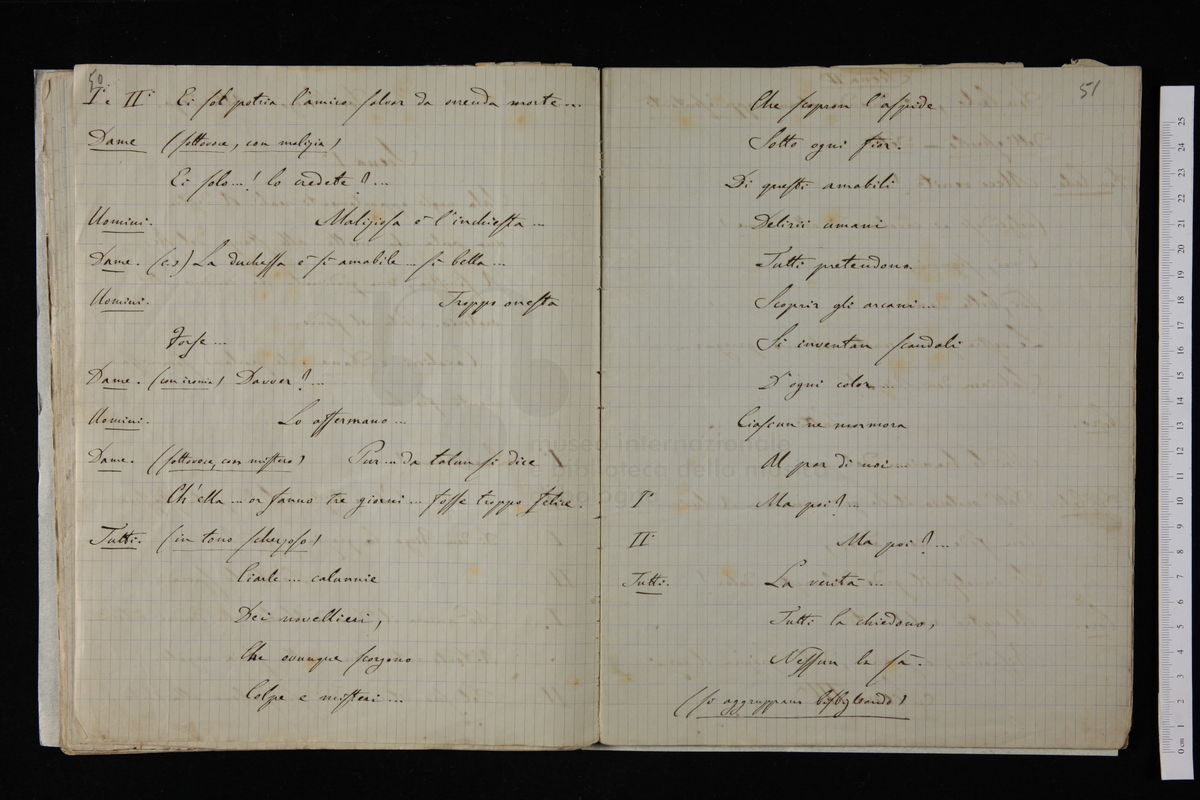 50
I.i e II.i Ei sol potria l'amico salvar da orrenda morte...
Dame (sottovoce, con malizia)
Ei solo...! lo credete?...
Uomini. Maliziosa è l'inchiesta...
Dame. (c.s) La duchessa è sì amabile... sì bella...
Uomini. Troppo onesta
Forse...
Dame. (con ironia) Davver?...
Uomini. Lo affermano...
Dame. (sottovoce, con mistero) Pur... da talun si dice
Ch'ella... or fanno tre giorni... fosse troppo felice.
Tutti. (in tono scherzoso)
Ciarle... calunnie
Dei novellieri,
Che ovunque scorgono
Colpe e misteri...
51
Che scopron l'aspide
Sotto ogni fior.
Di questi amabili
Delirii umani
Tutti pretendono
Scoprir gli arcani...
Si inventan scandali
D'ogni color...
Ciascun ne mormora
Al par di noi...
I.i Ma poi?...
II.i Ma poi?...
Tutti. La verità...
Tutti la chiedono,
Nessun la sa.
(si aggruppano bisbigliando)
museo internazionale
0 cm 1 2 3 4 5 6 7 8 9 10 11 12 13 14 15 16 17 18 19 20 21 22 23 24 25